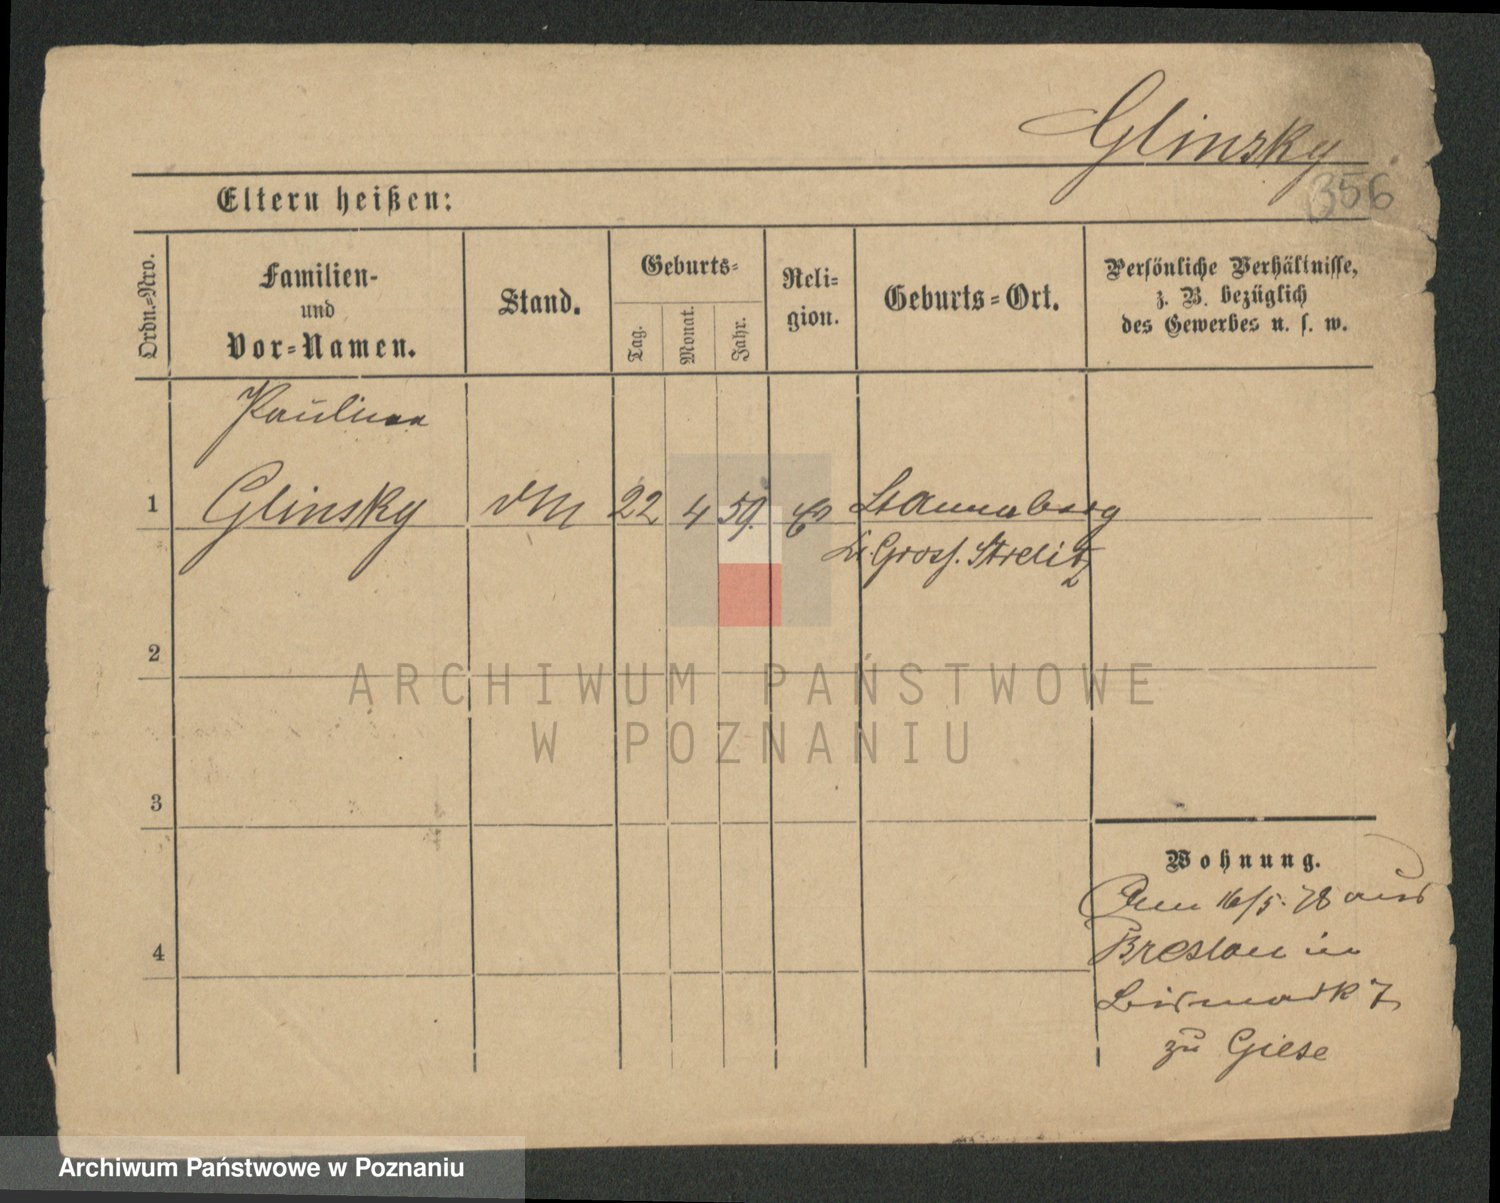 Glinsky
356
Eltern heißen:
Ordn.=Nro.
Familien-
und
Vor=Namen.
Stand.
Geburts=
Tag.
Monat.
Jahr.
Reli=
gion.
Geburts=Ort.
Persönliche Verhältnisse,
z. B. bezüglich
des Gewerbes u. s. w.
Paulina
1 Glinsky 22 4 59.
Gross. Strelitz
2
3
4
Wohnung.
Am 16/5. 78 aus
Breslau in
Bismark 7
zu Giese
ARCHIWUM PAŃSTWOWE
W POZNANIU
Archiwum Państwowe w Poznaniu